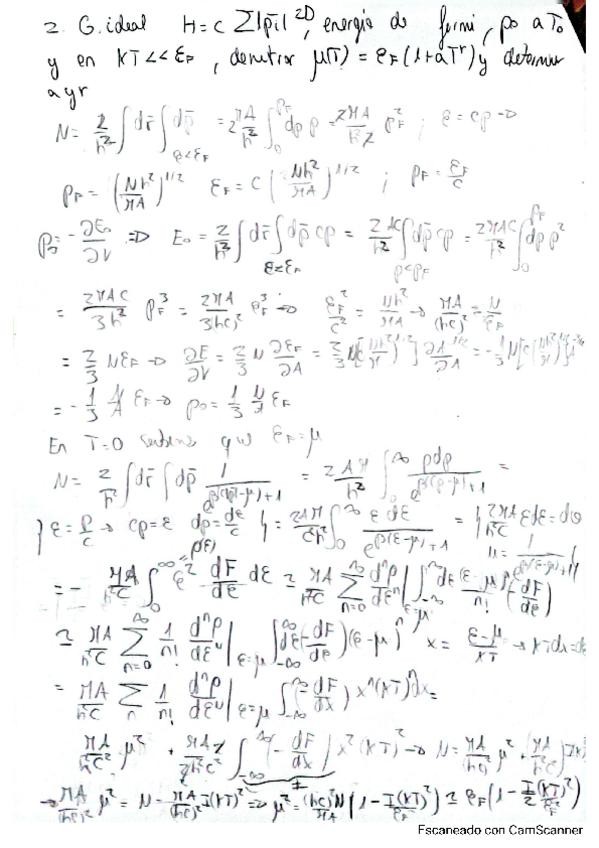 2. G. ideal H = c Σ|p̄i| 2D, energía de fermi, p0 a T0
y en KT << εF, demostrar μ(T) = εF(1+aT^r) y determinar
a y r
N = 2/h² ∫dr̄ ∫dp̄ = 2πA/h² ∫₀^pF dp p = 2πA/h² pF² ; ε = cp →
pF = (Nh²/πA)^1/2 εF = c (Nh²/πA)^1/2 ; pF = εF/c
P0 = -∂E0/∂V ⇒ E0 = 2/h² ∫dr̄ ∫dp̄ cp = 2AC/h² ∫dp̄ cp = 2πAC/h² ∫₀^pF dp p²
= 2πAC/3h² pF³ = 2πA/3(hc)² εF³ → εF²/c² = Nh²/πA → πA/(hc)² = N/εF
= 2/3 NεF → ∂E/∂V = 2/3 N ∂εF/∂A =
= -1/3 N/A εF → p0 = 1/3 N/A εF
En T=0 sabemos que εF = μ
N = 2/h² ∫dr̄ ∫dp̄ 1/(e^β(cp-μ)+1) = 2Aπ/h² ∫₀^∞ pdp/(e^β(cp-μ)+1) =
} ε = p/c → cp = ε dp = dε/c { = 2πA/c²h² ∫₀^∞ ε dε/(e^β(ε-μ)+1) =
= - πA/h²c ∫₀^∞ ε² dF/dε dε ≃ πA/h²c Σ n=0 ∞
≃ πA/h²c Σ n=0 ∞ 1/n! dⁿρ/dεⁿ | ε=μ ∫-∞ ∞ dε(-dF/dε)(ε-μ)ⁿ x = ε-μ/KT →
= πA/h²c Σ n 1/n! dⁿρ/dεⁿ | ε=μ ∫-∞ ∞ (-dF/dx) xⁿ(KT)ⁿdx =
πA/h²c² μ² + πA2/2h²c² ∫-∞ ∞ (-dF/dx) x²(KT)² → N = πA/(hc)² μ² +
→ πA/(hc)² μ² = N - πA/(hc)² I(KT)² ⇒ μ² = (hc)²N/πA (1 - I(KT)²/εF²) ≃ εF(1 - I/2 (KT)²/εF²)
Escaneado con CamScanner